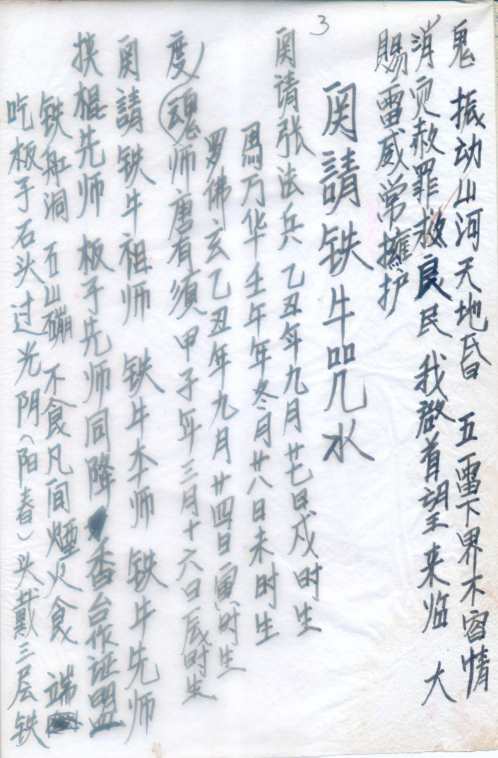 3
鬼 振动山河天地昏 五雷下界不容情
消灾赦罪救良民 我啟首望来临 大
賜雷威常擁护
闵請铁牛咒水
闵请张法兵 乙丑年九月廿七日戍时生
馬万华壬午年冬月廿八日未时生
罗佛玄乙丑年九月廿四日寅时生
度(魂)师唐有须 甲子年三月十六日辰时生
闵請铁牛祖师 铁牛本师 铁牛先师
挟棍先师 板子先师同降 香台作证盟
铁船洞 五山硼 不食凡间煙火食 端
吃板子石头过光阴(阳春)头戴三层铁